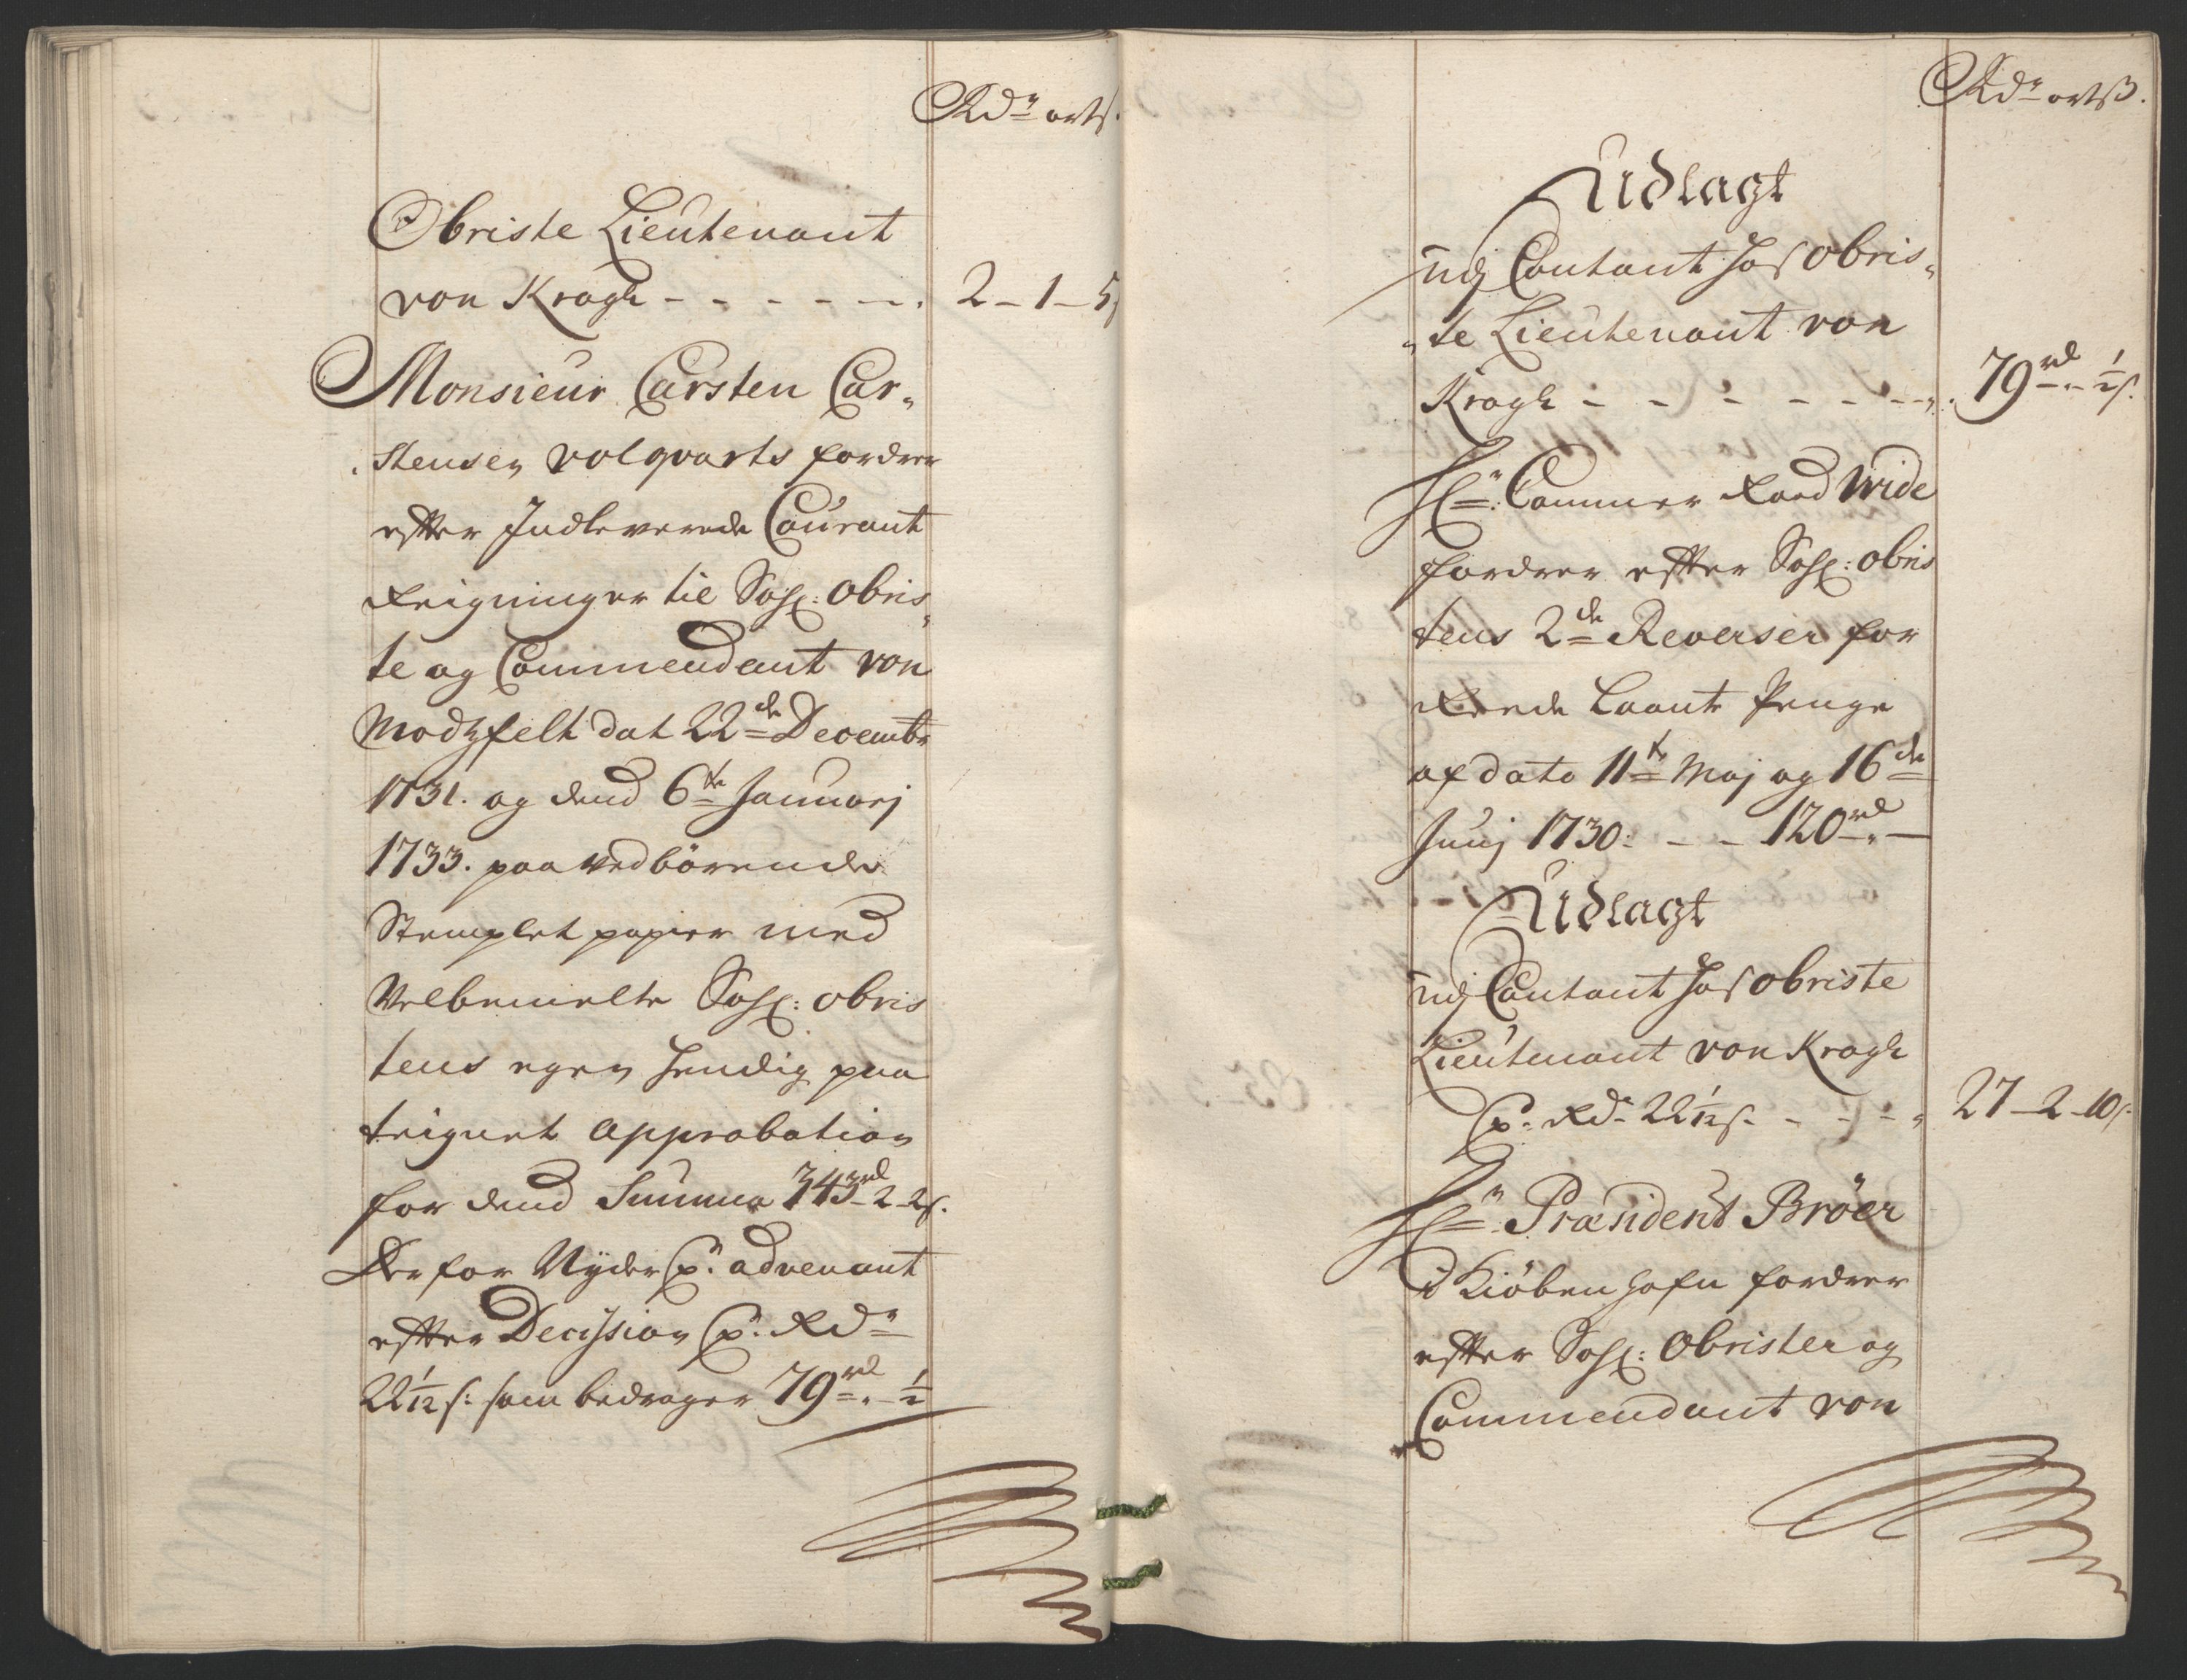 Rdr ort s.
Obriste Lieutenant
von Kragh - - - - - - 2 - 1 - 5
Monsieur Carsten Car-
stensen volqvarts fordrer
efter Indleverede Courant
Reigninger til Sahl: Obris-
te og Commendant von
Modtzfelt dat 22de Decembr
1731. og dend 6te Januarj
1733. paa vedbörende
Stemplet papier med
Velbemelte Sahl: obris
tens egen hendig paa
teignet Approbation
for dend Summa 343rd 2 - 2s.
Der for Nyder Pr. advenant
efter Decission Pr. Rdr
22 1/12 s: som bedrager 79rd " - 1/2
Rdr ort ß.
Udlagt
udj Contant hos Obris-
te Lieutenant von
Kragh - - - - - - - 79rd " 1/2 s.
Hr. Cammer Raad Wide
fordrer efter Sahl: obris
tens 2de Reverser for
Reede Laante Penge
af dato 11te Maj og 16de
Junj 1730: - - 120rd " -
Udlagt
udj Contant hos obriste
Lieutenant von Kragh
Pr. Rdr 22 1/12 s. - - - - 27 - 2 - 10s.
Hr. Præsident Bröer
i Kiöbenhafn fordrer
efter Sahl: Obrister og
Commendant von